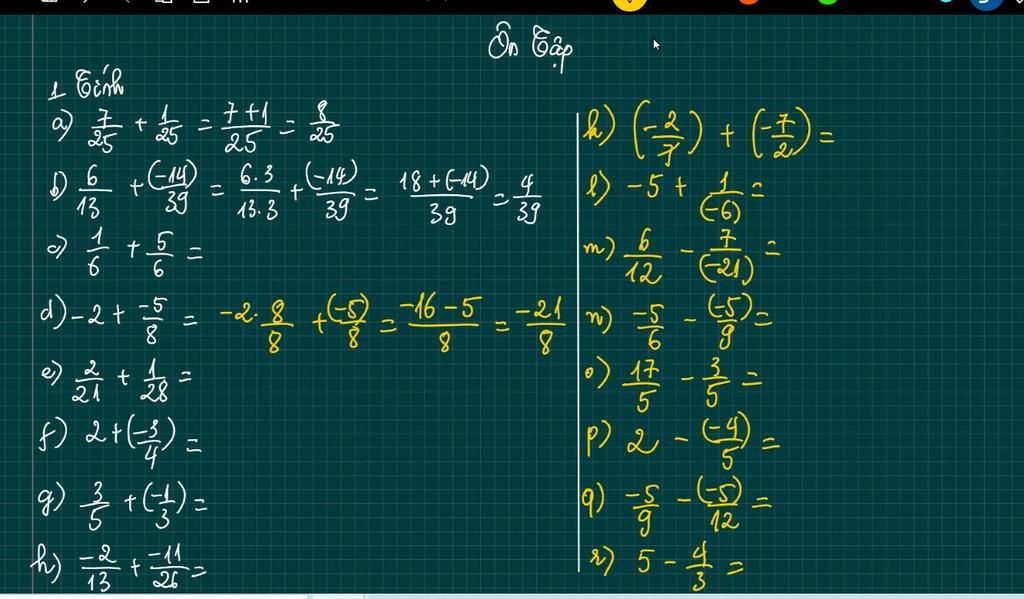 Ôn Tập
1 Tính
a) 7/25 + 1/25 = (7+1)/25 = 8/25
b) 6/13 + (-14)/39 = (6.3)/(13.3) + (-14)/39 = (18+(-14))/39 = 4/39
c) 1/6 + 5/6 =
d) -2 + -5/8 = (-2.8)/8 + (-5)/8 = (-16-5)/8 = -21/8
e) 2/21 + 1/28 =
f) 2 + (-3/4) =
g) 3/5 + (-1/3) =
h) -2/13 + -11/26 =
k) (-2/7) + (-7/2) =
l) -5 + 1/(-6) =
m) 6/12 - 7/(-21) =
n) -5/6 - (-5)/9 =
o) 17/5 - 3/5 =
p) 2 - (-4)/5 =
q) -5/9 - (-5)/12 =
r) 5 - 4/3 =